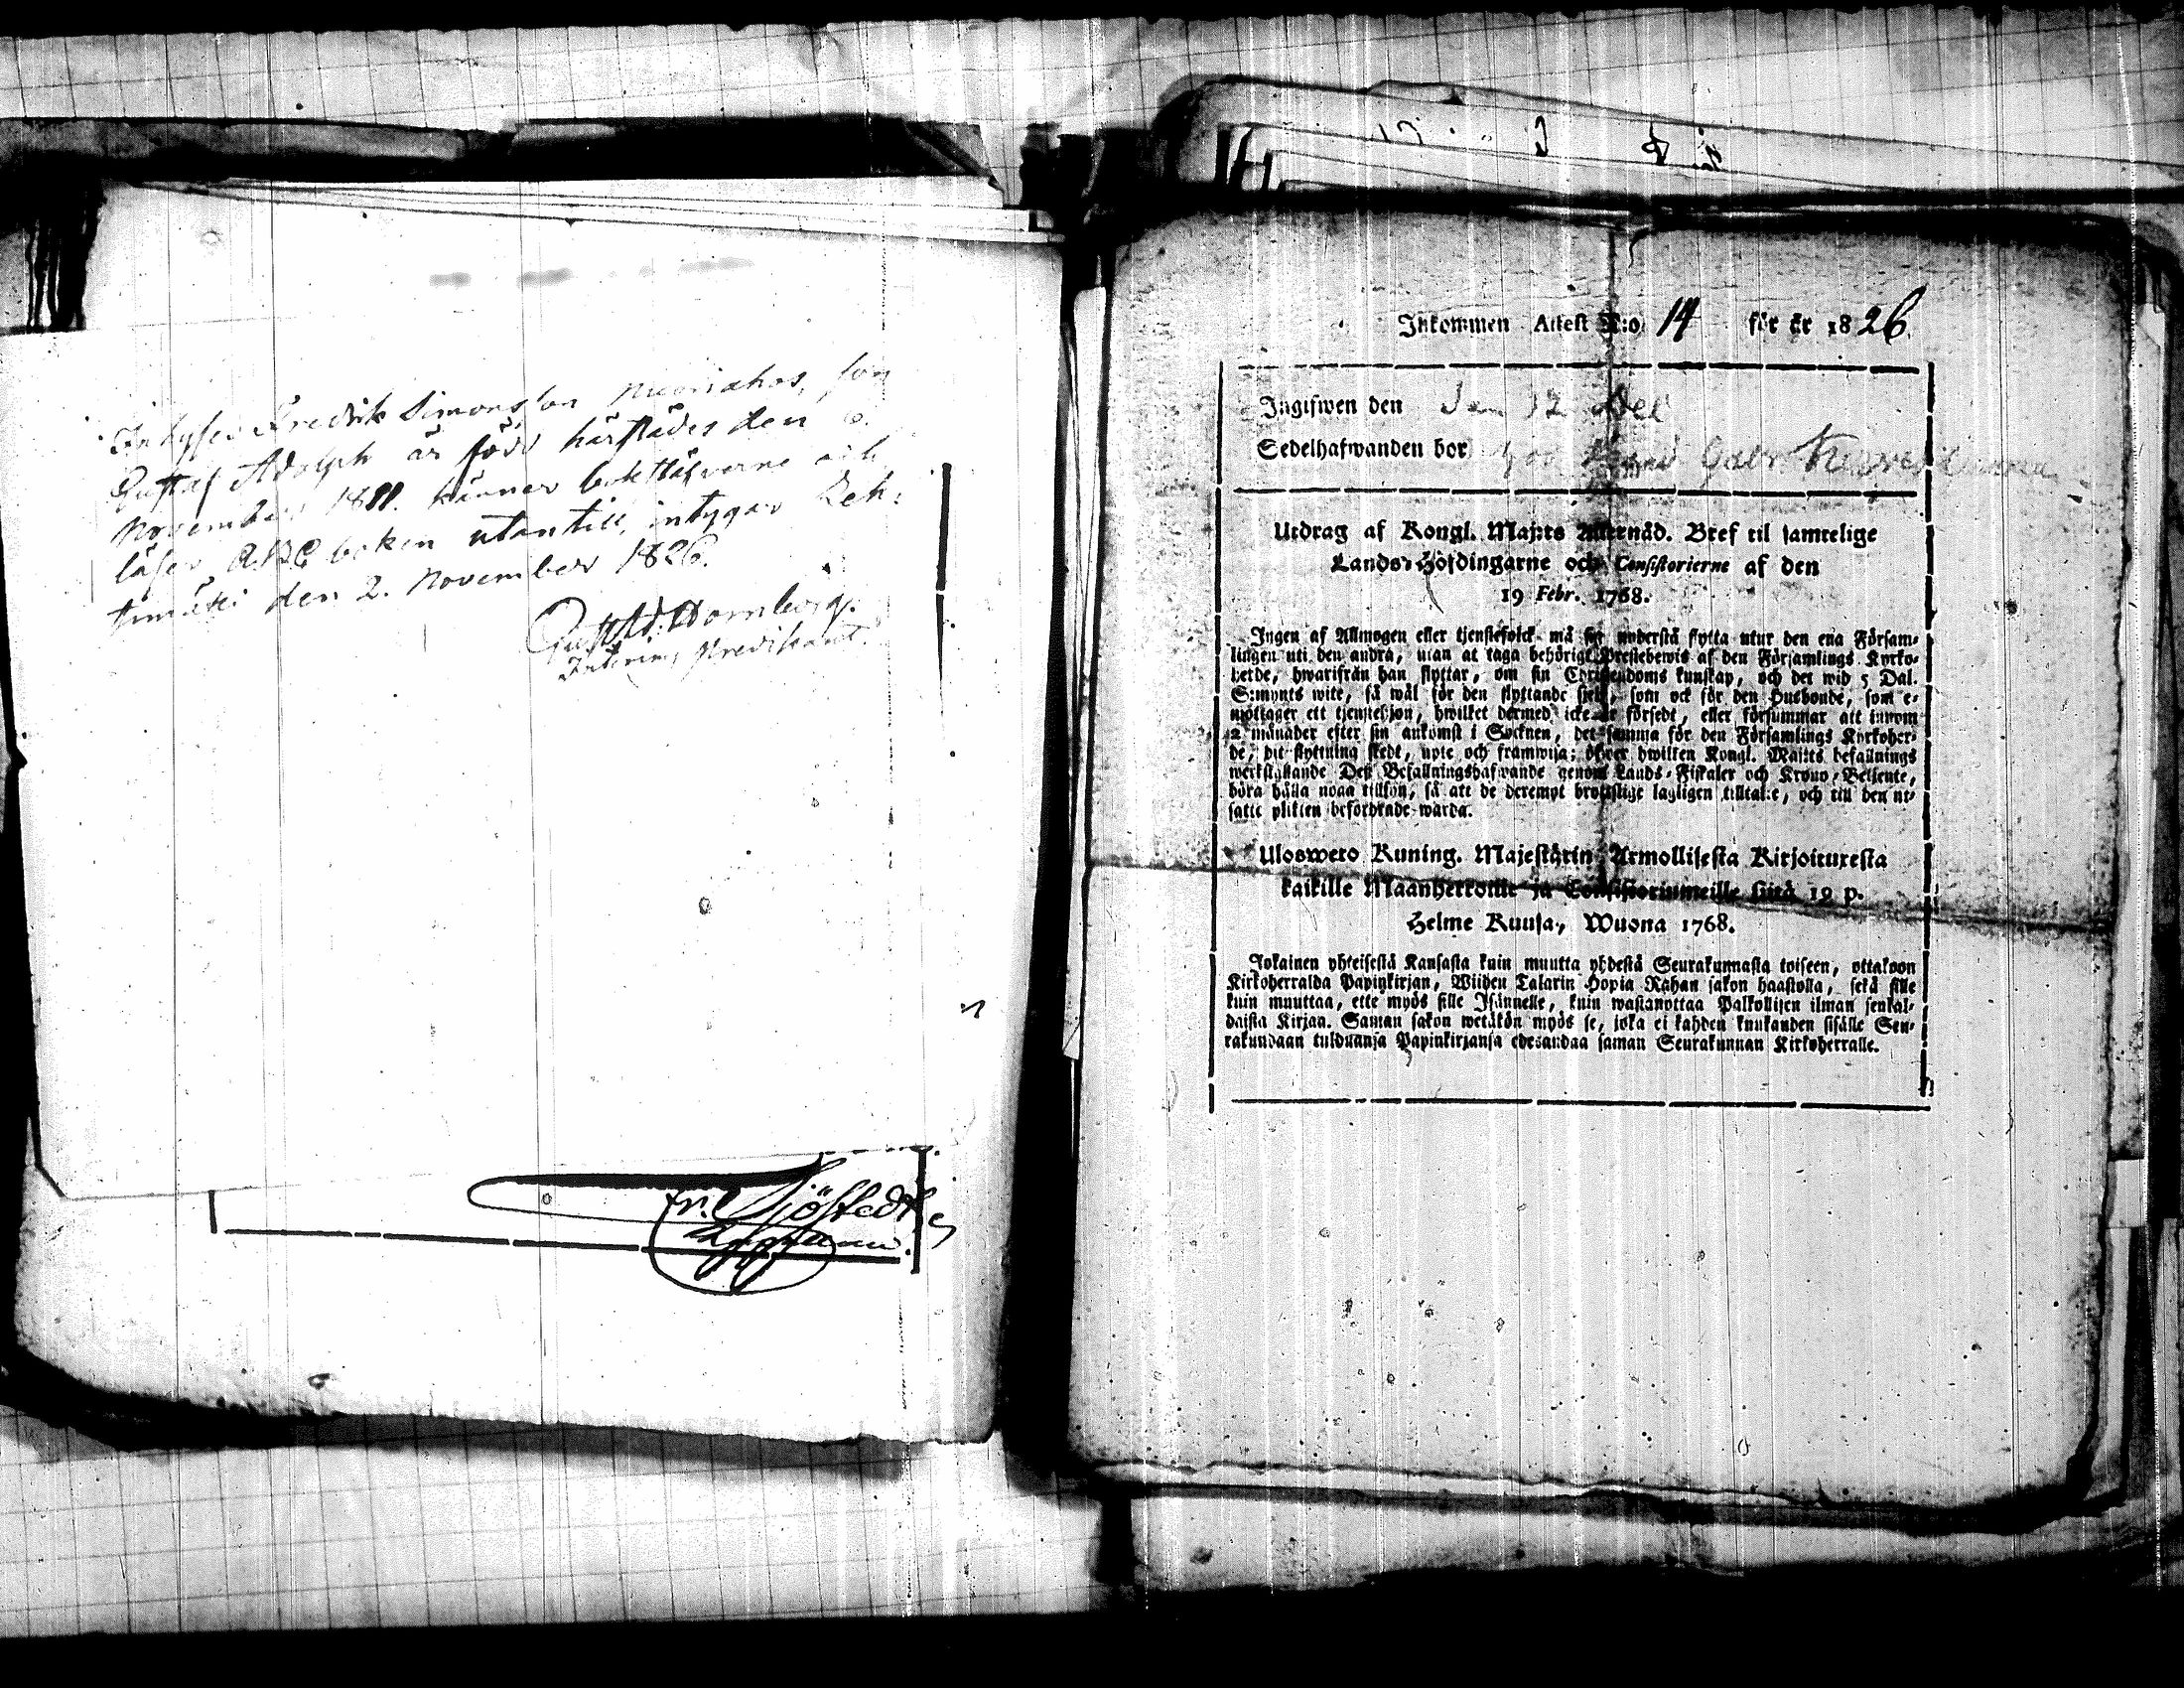 Inhyses Fredrik Simonsson Meoriahos, son
Gustaf Adolph är född härstädes den 6.
November 1811. känner bokstäfverne och
läser ABC boken utantill, intygar Leh-
timäki den 2. November 1826.
Gust. Ad. Dornberg.
Interims predikant.
Fr. Sjöstedt
Inkommen Attest N:o 14 för år 1826.
Ingifwen den 12 Dec
Sedelhafwanden bor hos Gabr.
Utdrag af Kongl. Maj:ts Allernåd. Bref til samtelige
Lands-Höfdingarne och Consistorierne af den
19 Febr. 1768.
Ingen af Allmogen eller tjenstefolck må sig understå flytta utur den ena Försam-
lingen uti den andra, utan at taga behörigt Prestebewis af den Församlings Kyrko-
herde, hwarifrån han flyttar, om sin Christendoms kunskap, och det wid 5 Dal.
S:mynts wite, så wäl för den flyttande sjelf, som ock för den Husbonde, som e-
mottager ett tjenstehjon, hwilket dermed icke är försedt, eller försummar att innom
2 månader efter sin ankomst i Socknen, det samma för den Församlings Kyrkoher-
de, dit flyttning skedt, upte och framwisa; öfwer hwilken Kongl. Maj:ts befallnings
werkställande Dess Befallningshafwande genom Lands-Fiskaler och Krono-Betjente,
böra hålla noga tillsyn, så att de deremot brottslige lagligen tilltalte, och till den ut-
satte plikten befordrade warda.
Ulosweto Kuning. Majestätin Armollisesta Kirjoituxesta
kaikille Maanherroille ja Consistoriumeille siitä 19 p.
Helme Kuusa, Wuona 1768.
Jokainen yhteisestä Kansasta kuin muutta yhdestä Seurakunnasta toiseen, ottakoon
Kirkoherralda Papinkirjan, Wiiden Talarin Hopia Rahan sakon haastolla, sekä sille
kuin muuttaa, ette myös sille Isännelle, kuin wastanottaa Palkollisen ilman senkal-
daista Kirjaa. Saman sakon wetäkön myös se, joka ei kahden kuukauden sisälle Seu-
rakundaan tulduanja Papinkirjansa edesandaa saman Seurakunnan Kirkoherralle.